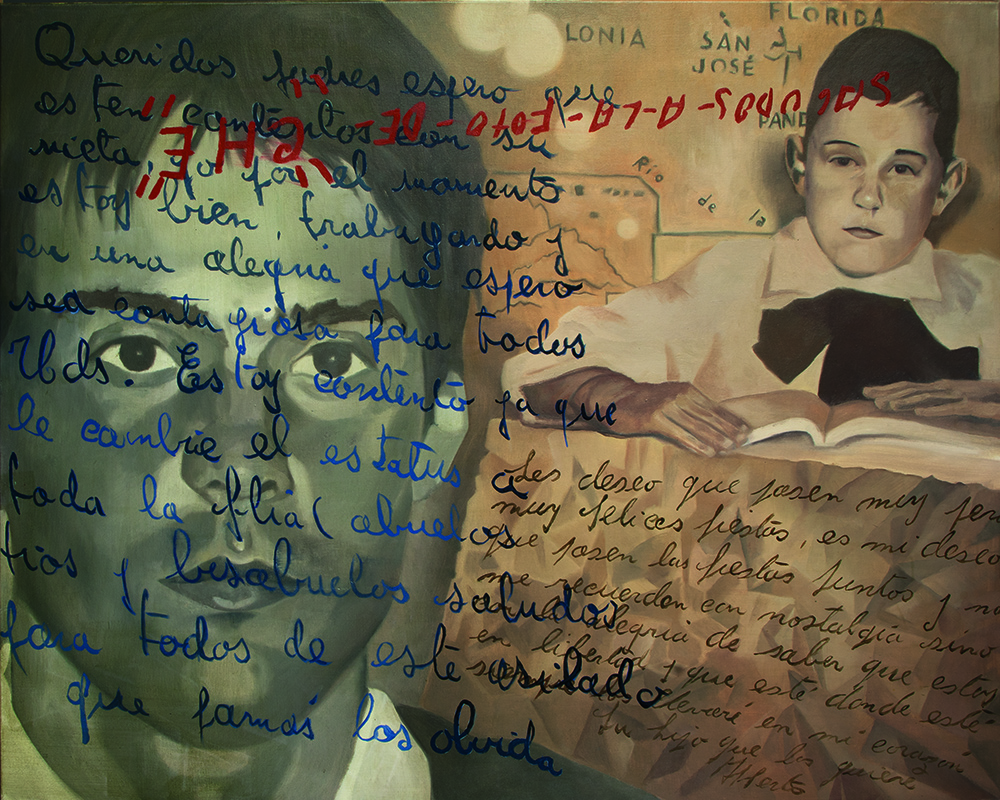 FLORIDA
LONIA
SAN
JOSÉ
PAND
Río de la
-A-LA-FOTO-DE-
"CHE"
Queridos padres espero que
esten contentos con su
nieta, yo por el momento
estoy bien, trabajando y
en una alegria que espero
sea contagiosa para todos
Uds. Estoy contento ya que
le cambie el estatus a
toda la flia (abuelos
tios y bisabuelos saludos
para todos de este exilado
que jamás los olvida
Les deseo que pasen muy
muy felices fiestas, es mi deseo
que pasen las fiestas juntos y no
me recuerden con nostalgia sino
alegria de saber que estoy
en libertad y que esté dónde esté
siempre llevaré en mi corazón
Su hijo que los quiere
Alberto